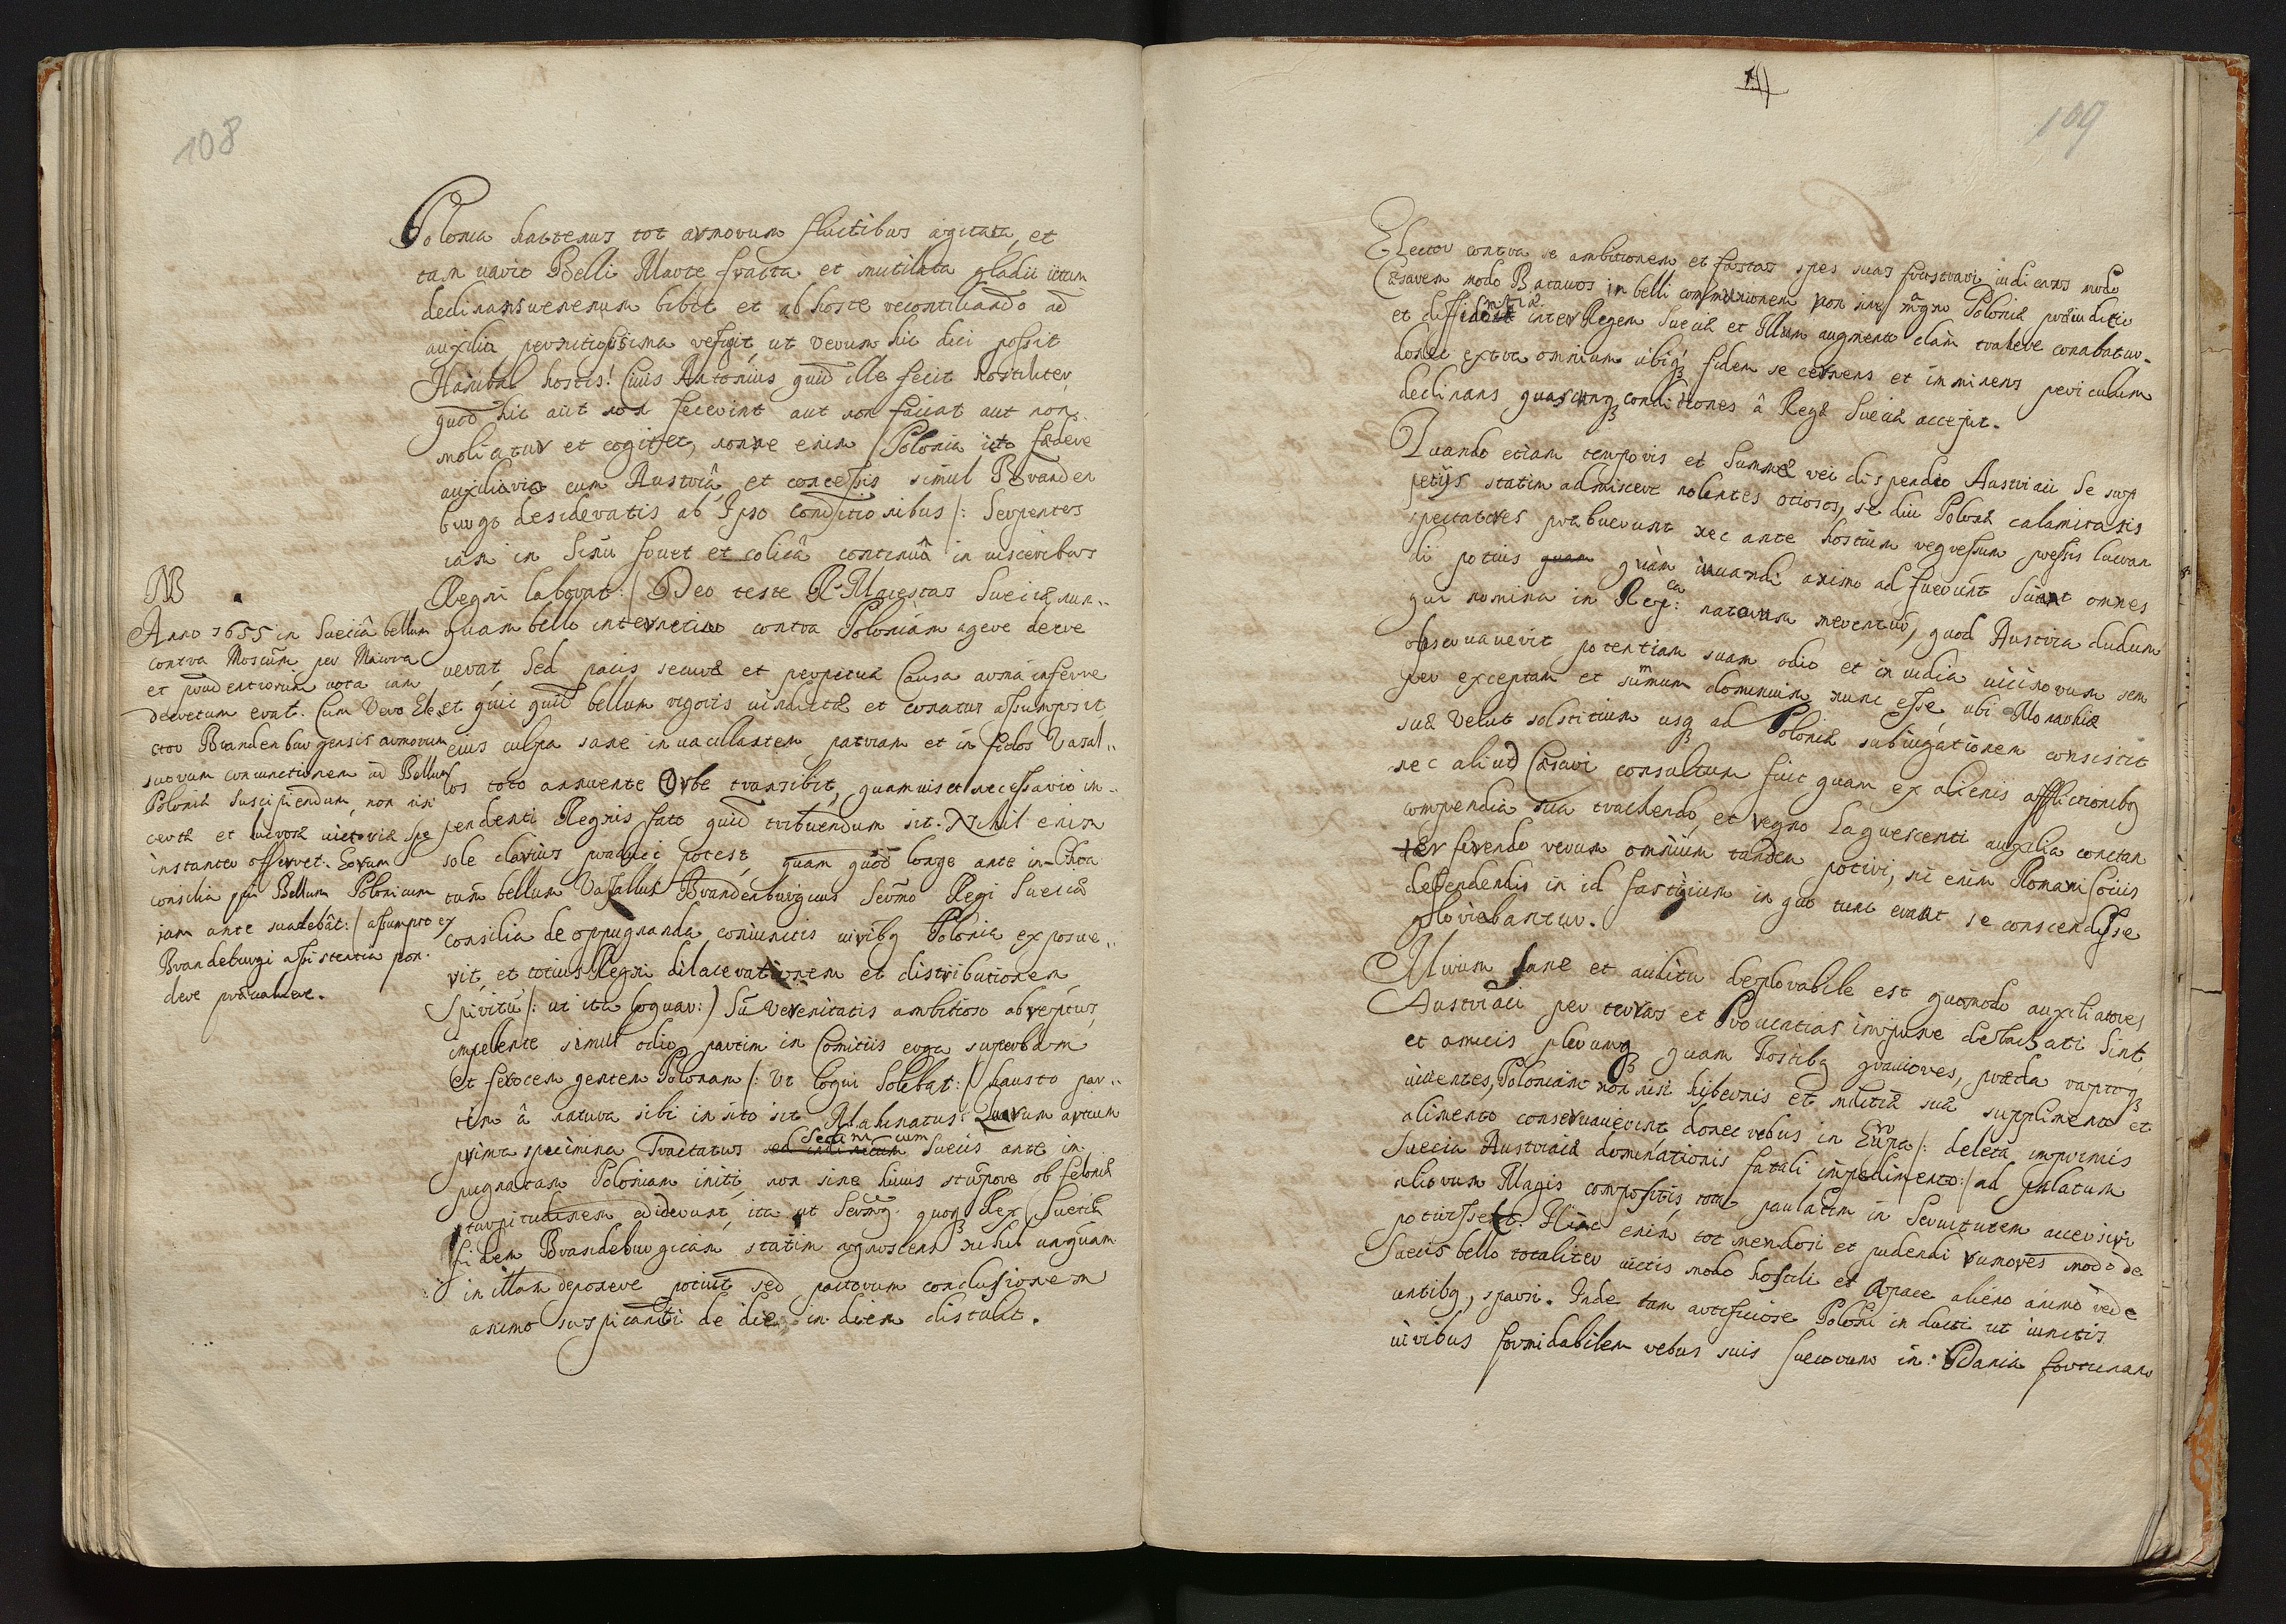 108
Polonia hactenus tot armorum fluctibus agitata, et
tam vario Belli Marte fracta et mutilata gladii ictum
declinans venenum bibit et ab hoste reconciliando ad
auxilia perniciosissima refugit, ut verum hic dici possit
Hanibal hostis! Civis Antonius quid ille fecit hostiliter,
quod hic aut non fecerint aut non faciat aut non
moliatur et cogitet, nonne enim /Polonia icto fœdere
auxiliario cum Austriâ, et concessis simul Branden
burgo desideratis ab Ipso Conditionibus /: Serpentes
iam in Sinu fovet et colicâ continuâ in visceribus
Regni laborat :/ Deo teste R. Maiestas Sueciæ nun„
quam bello internecivo contra Poloniam agere decre
verat, Sed pacis securæ et perpetuæ Causa arma inferre
et qui quid bellum rigoris vindictæ et conatus assumpsit,
eius culpa sane in vacillantem patriam et in fidos Vasal„
los toto annuente Orbe transibit, quamvis et necessario im„
pendenti Regnis fato quid tribuendum sit. Nihil enim
sole clarius produci potest, quam quod longe ante inchoa
tum bellum Vasallus Brandenburgicus Sermo Regi Sueciæ
consilia de oppugnanda coniunctis viribq Polonia exposue„
rit, et totius Regni dilacerationem et distributionem
Spiritu /: ut ita loquar :/ Suverenitatis ambitioso abreptus,
impellente simul odio partim in Comitiis erga superbam
et ferocem gentem Polonam /: Ut loqui Solebat :/ hausto par„
tim â natura sibi insito sit Machinatus: Quarum artium
prima specimina Tractatus Secum cum Suecis ante im
pugnatam Poloniam initi, non sine huius stupore ob feloniæ
turpitudinem ediderunt, ita ut Sermq quoq Rex Sueciæ
fidem Brandeburgicam statim agnoscens nihil unquam
in illam deponere potuit sed pactorum conclusionem
animo suspicanti de die in diem distulit.
NB
Anno 1655 in Sueciâ bellum
contra Moscum per Maiora
et prudentiorum vota iam
decretum erat. Cum Vero Ele
ctor Brandenburgensis armorum
suorum coniunctionem ad Bellum
Poloniæ Suscipiendum, non nisi
certæ et veræ victoriæ Spe
instanter offerret. Eorum
consilia qui Bellum Polonicum
iam ante suadebât :/ assumpto ex
Brandeburgi assistentia pon„
dere prævaluere.
109
Elector contra se ambitionem et fastas spes suas frustrari iudicans modo
Cæsarem modo Batavos in belli communionem non sine magno Poloniæ præiudicio
et diffidentiæ inter Regem Sueciæ et Illum augmento clam trahere conabatur.
donec extra omnium ubiq fidem se cernens et imminens periculum
declinans quascunq conditiones â Rege Sueciæ accepit.
Quando etiam temporis et Summæ rei dispendio Austriaci se sup
petijs statim admiscere nolentes otiosos, se diu Polonæ calamitatis
spectatores præbuerunt nec ante hostium regressum pressis lucran
di potius quam quàm iuvandi animo adfuerunt Sciant omnes
qui nomina in Rep: natorum merentur, quod Austria dudum
observaverit potentiam suam odio et invidia vicinorum sem
per exceptam et summum dominium nunc esse, ubi Monarchiæ
suæ Velut solstitium usq ad Poloniæ subiugationem consistit
nec aliud Cæsari consultum fuit quam ex alienis afflictionibq
compendia sua trachendo, et regno Laquescenti auxilia conctan
ter ferendo rerum omnium tandem potiri, sic enim Romani Sociis
defendendis in id fastigium in quo tunc erant se conscendisse
gloriebantur.
Mirum sane et auditu deplorabile est quomodo auxiliatores
Austriaci per terras et Provincias impune debachati Sint,
et amicis plerumq quam hostibq graviores, præda raptoq
viventes, Poloniam non nisi hibernis et militiæ suæ supplimento et
alimento conservaverint donec rebus in Europa /: deleta imprimis
Suecia Austriacæ dominationis fatali impedimento :/ ad palatum
aliorum Magis compositis, tota paulatim in Servitutem accersiri
potuisset. Hinc enim tot mendosi et pudendi rumores modo de
Suecis bello totaliter victis modo hostili et â pace alieno animo rede
untibq, sparsi. Inde tam artificiose Poloni inducti ut iunctis
viribus formidabilem rebus suis Suecorum in Dania fortunam